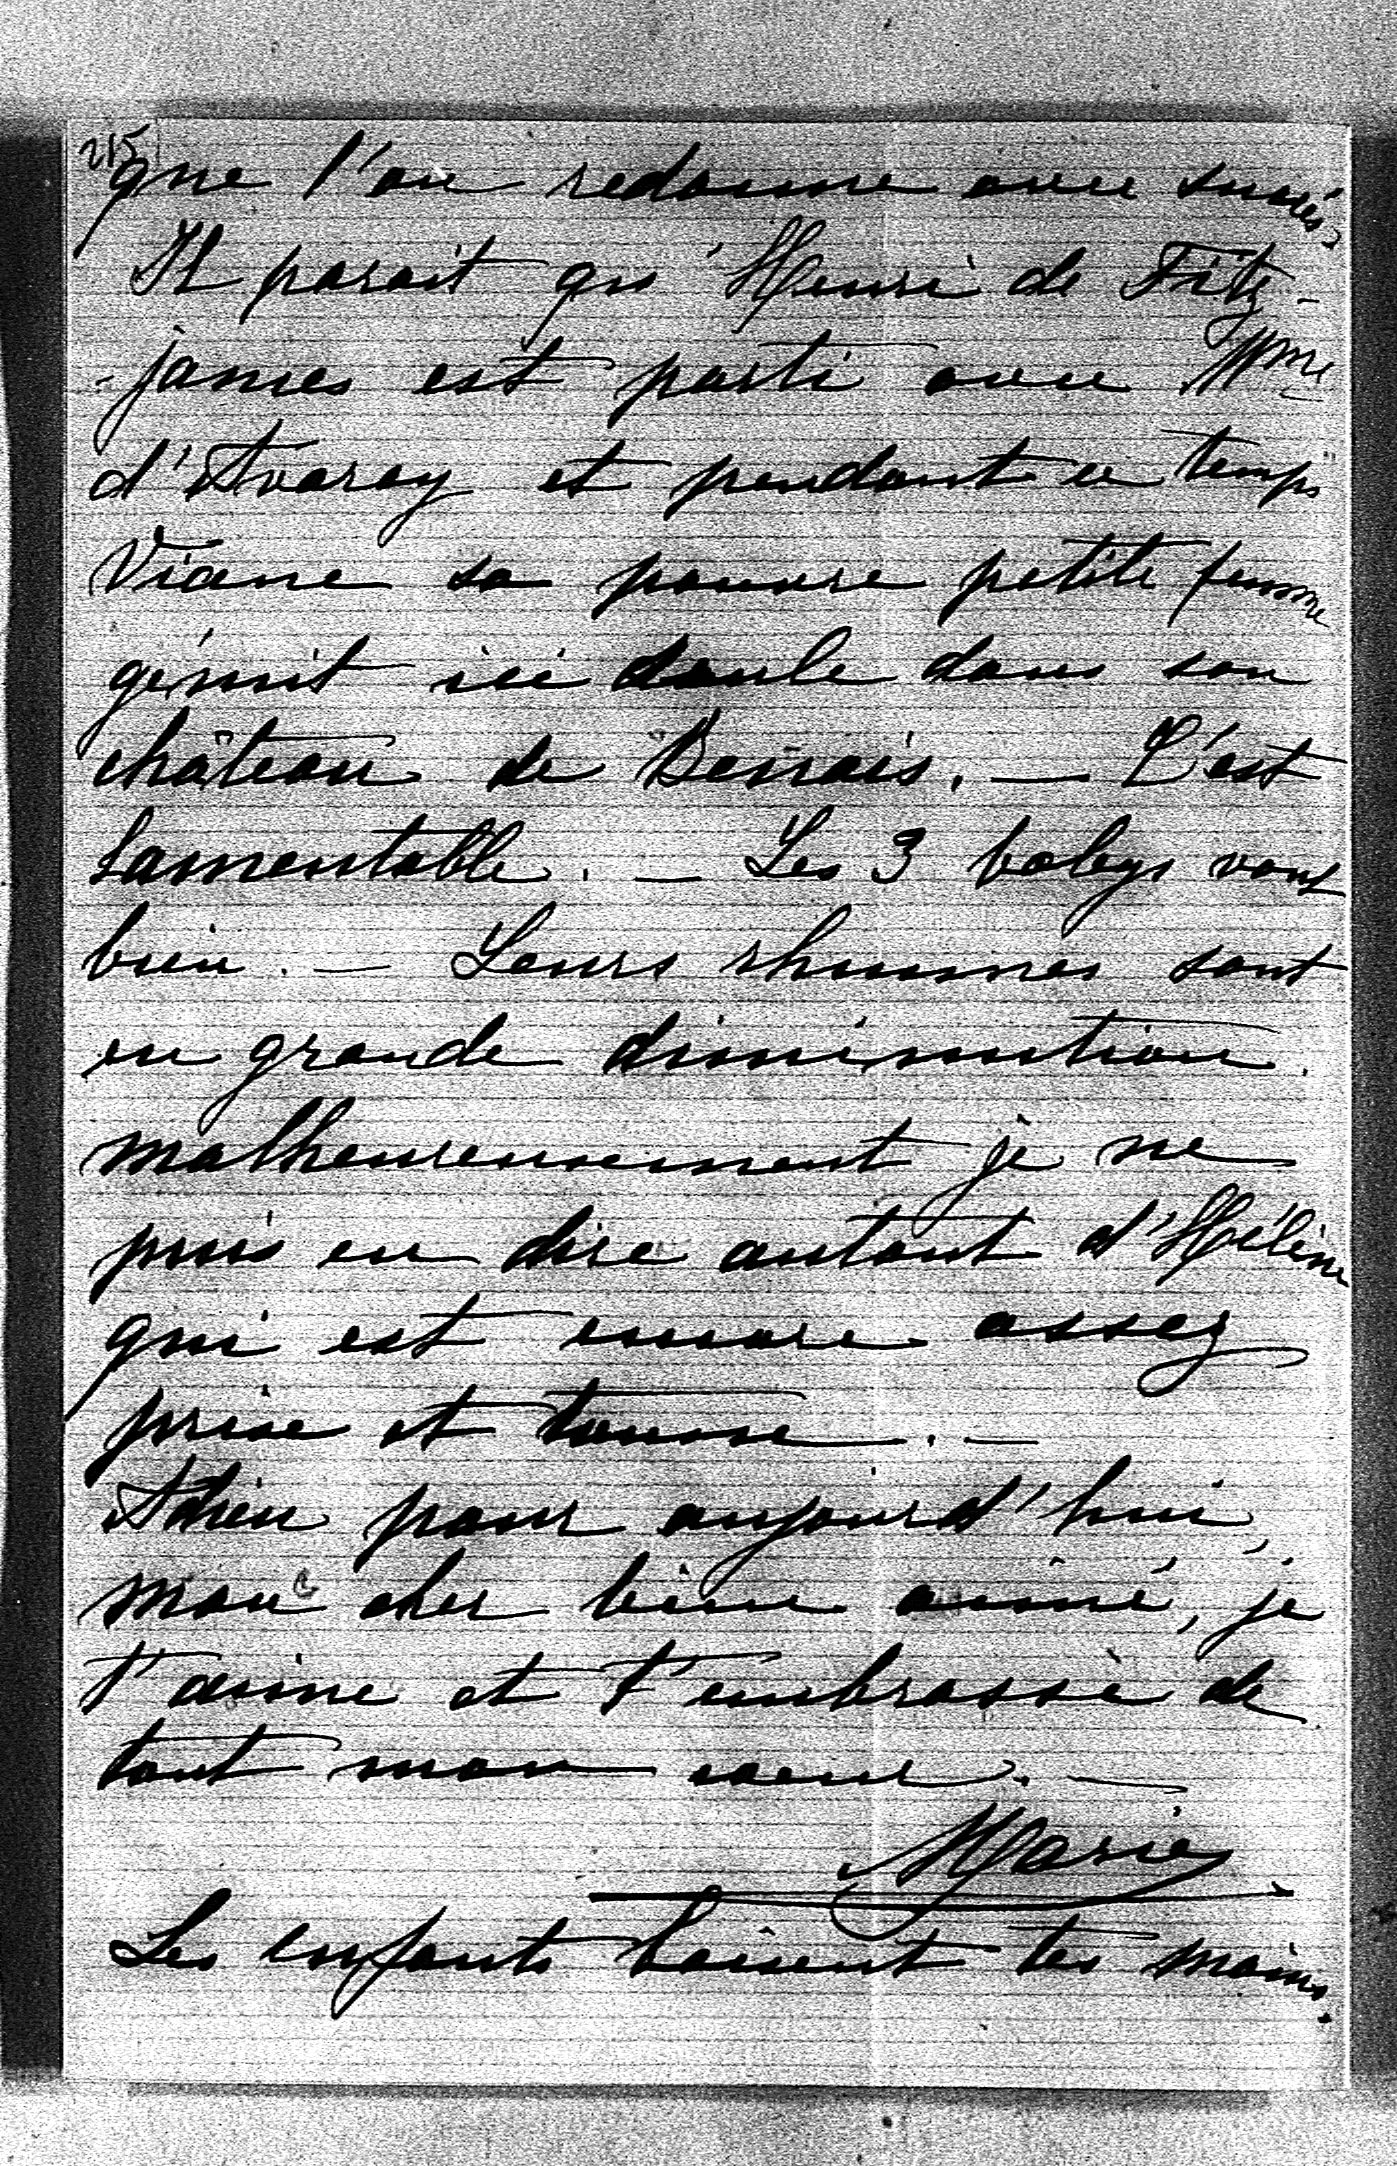 215
que l'on redonne avec succès.
Il parait qu'Henri de Fitz-
-james est parti avec Mme
d'Avaray et pendant ce temps
Viane sa pauvre petite femme
gémit ici seule dans son
château de Benais. — C'est
lamentable. — Les 3 babys vont
bien. — Leurs rhumes sont
en grande diminution.
malheureusement je ne
puis en dire autant d'Hélène
qui est encore assez
prise et tousse. —
Adieu pour aujourd'hui,
mon cher bien aimé, je
t'aime et t'embrasse de
tout mon coeur. —
Marie
Les enfants baisent tes mains.